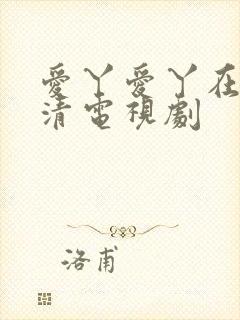 愛丫愛丫在
清電視劇
洛甫